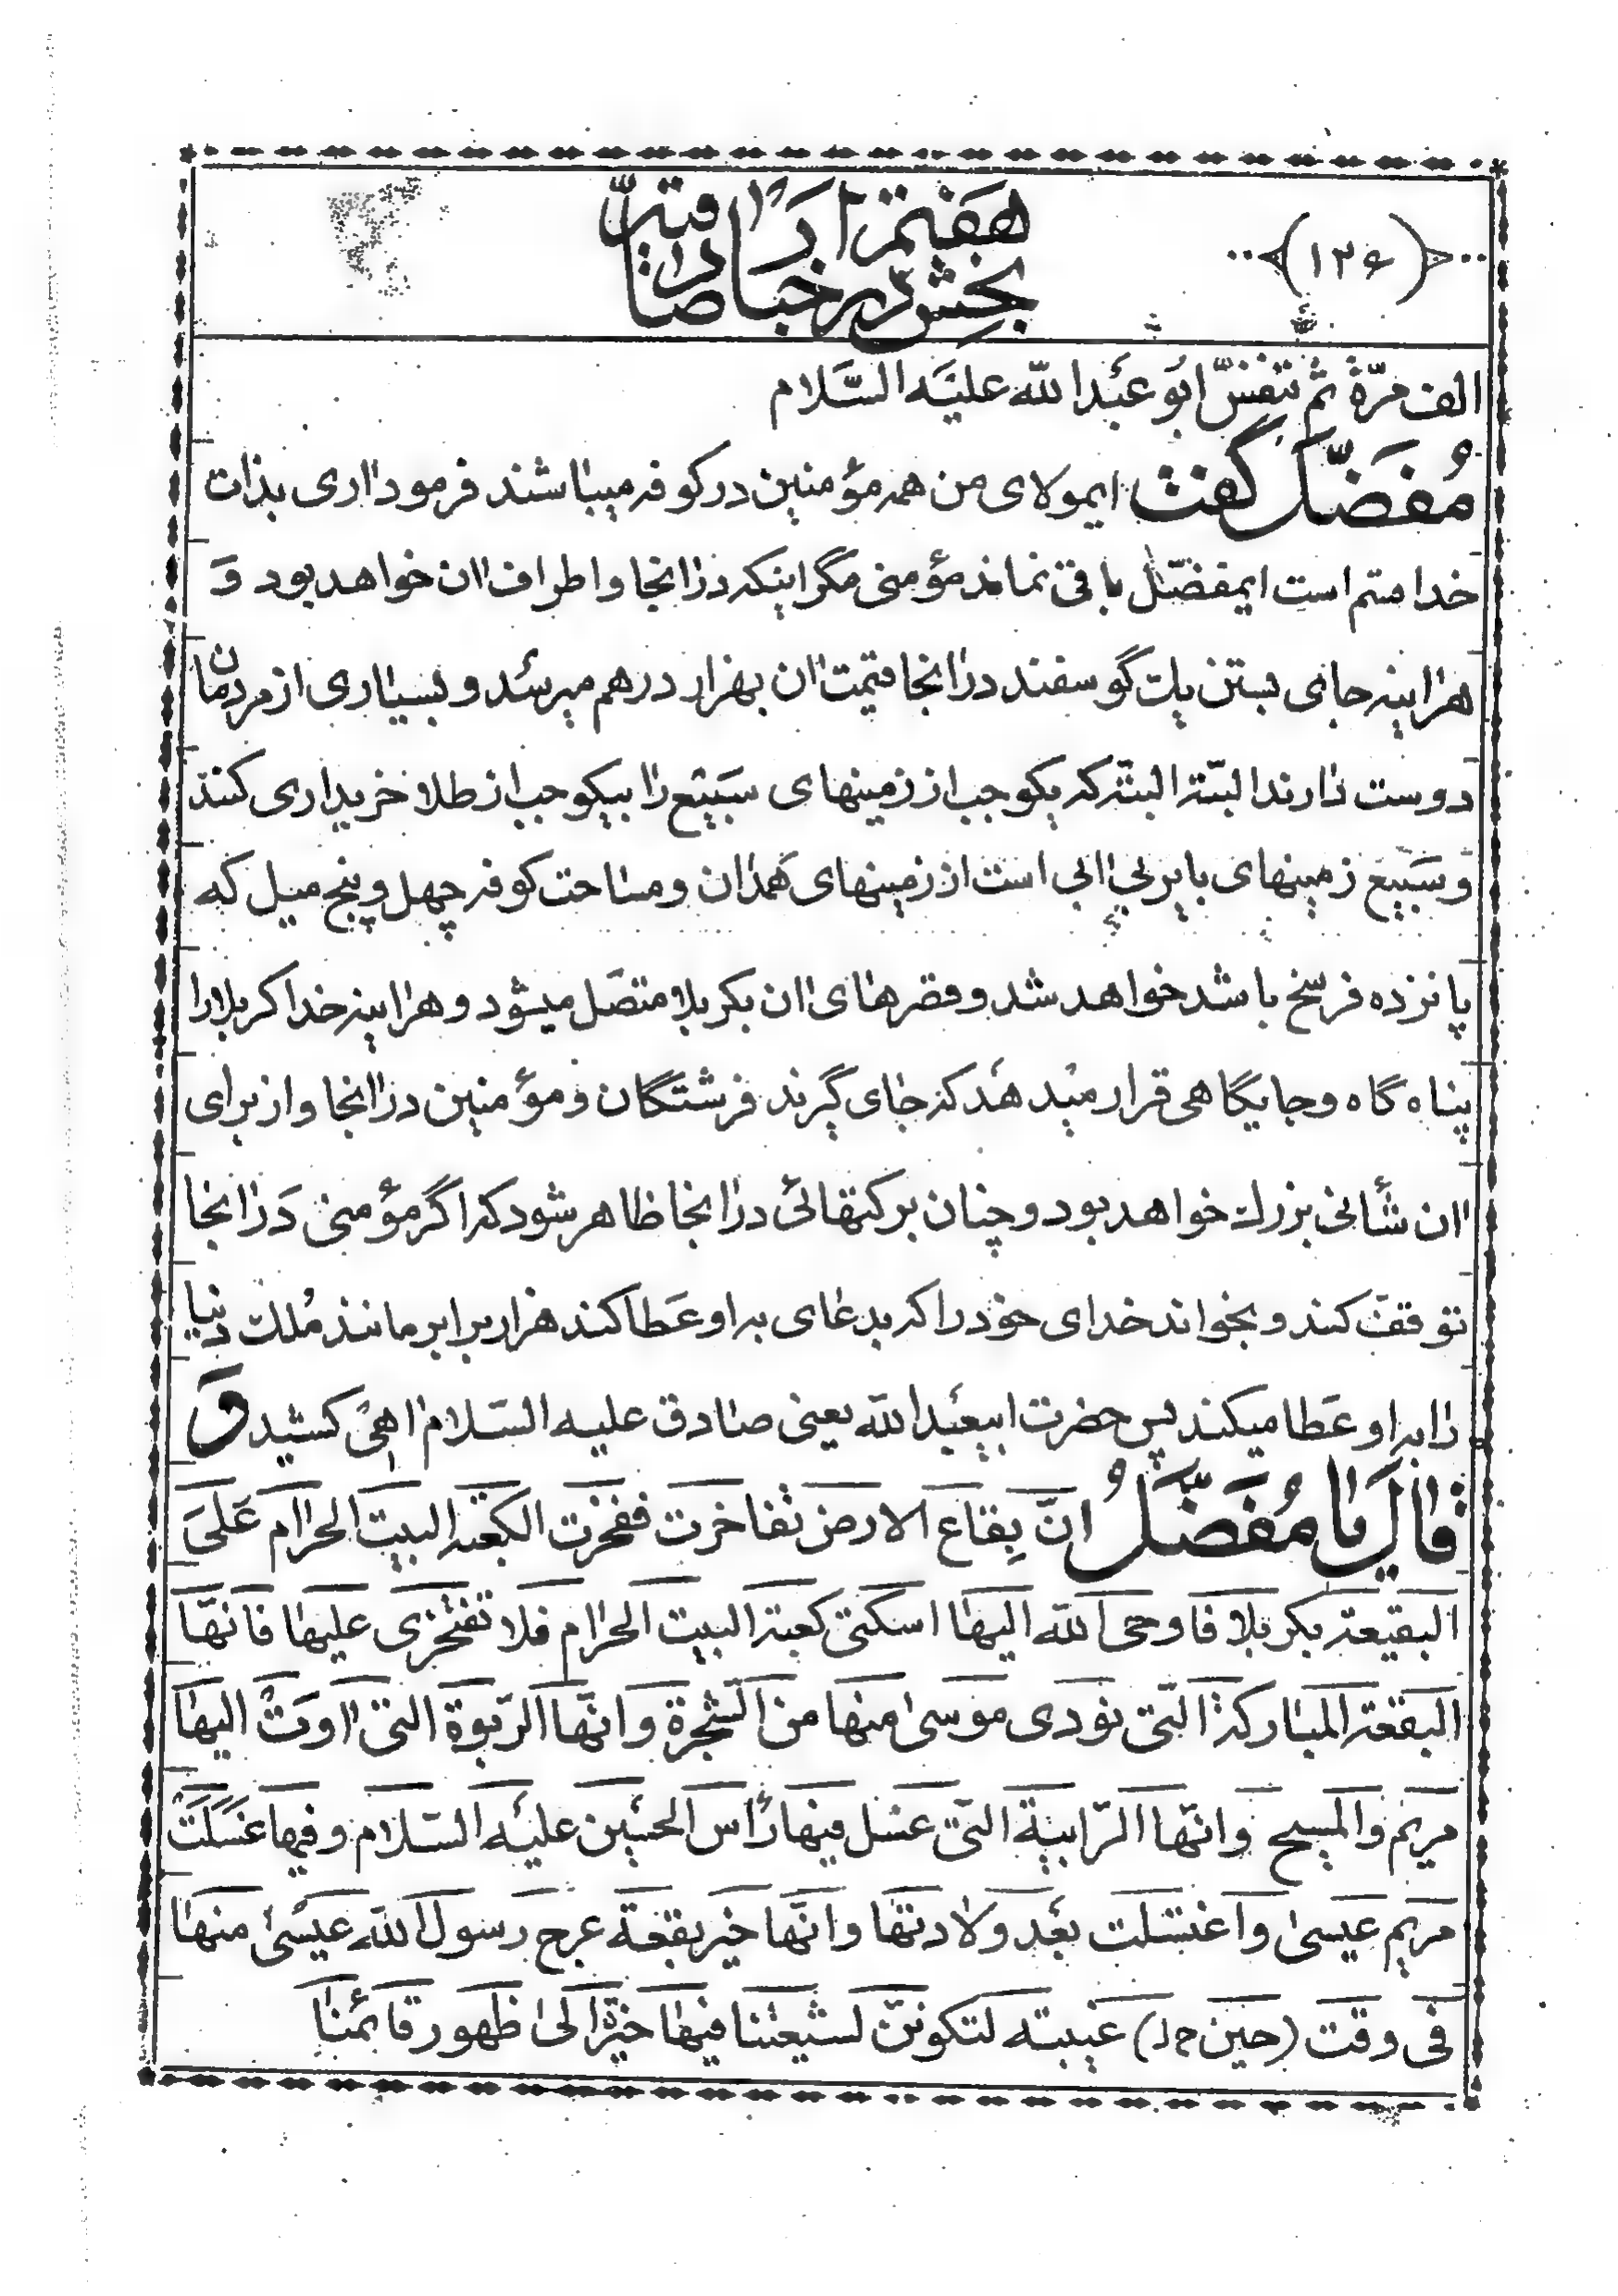 ﴿۱۲۶﴾
بخش هفتم در اخبار صادقیّه
الف مرّة ثم تنفّس ابو عبد الله علیه السّلام
مُفَضَّل گفت ایمولای من همه مؤمنین در کوفه میباشند فرمود اری بذات
خدا قسم است ایمفضّل باقی نماند مؤمنی مگر اینکه در انجا و اطراف ان خواهد بود وَ
هراینه جای بستن یک گوسفند در انجا قیمت ان بهزار درهم میرسد و بسیاری از مردمان
دوست دارند البتّه البتّه که یکوجب از زمینهای سَبیَع را بیکوجب از طلا خریداری کنند
وَ سَبیَع زمینهای بایر بی ابی است از زمینهای هَمدان و مساحت کوفه چهل و پنج میل که
پانزده فرسخ باشد خواهد شد و قصرهای ان بکربلا متصّل میشود و هراینه خدا کربلا را
پناه گاه و جایگاهی قرار میدهد که جای گیرند فرشتگان و مؤمنین در انجا و از برای
ان شأنی بزرک خواهد بود و چنان برکتهائی در انجا ظاهر شود که اگر مؤمنی در انجا
توقّف کند و بخواند خدای خود را که بدعای به او عَطا کند هزار برابر مانند مُلک دنیا
را به او عَطا میکند پس حضرت ابیعبد الله یعنی صادق علیه السّلام اهی کشید وَ
قالَ یا مُفَضَّلُ انَّ بِقاع الارض تفاخرت ففخرت الکعبة البیت الحرام عَلیَ
البقیعة بکربلا فاوحی الله الیها اسکتی کعبة البیت الحرام فلا تفتخری علیها فانّها
البقعة المبارکة الّتی نودی موسی منها من الشّجرة و انّها الرّبوة التی اوَتْ الیها
مریم و المسیح و انّها الرّابیة الّتی غسل فیها رأس الحسین علیه السّلام و فیها غَسَلَتْ
مریم عیسی و اغتسلت بعد ولادتها و انّها خیر بقعة عرج رسول الله عیسی منها
فی وقت (حین خ‌ل) غیبته لتکوننّ لشیعتنا فیها خیرة الی ظهور قائمنا